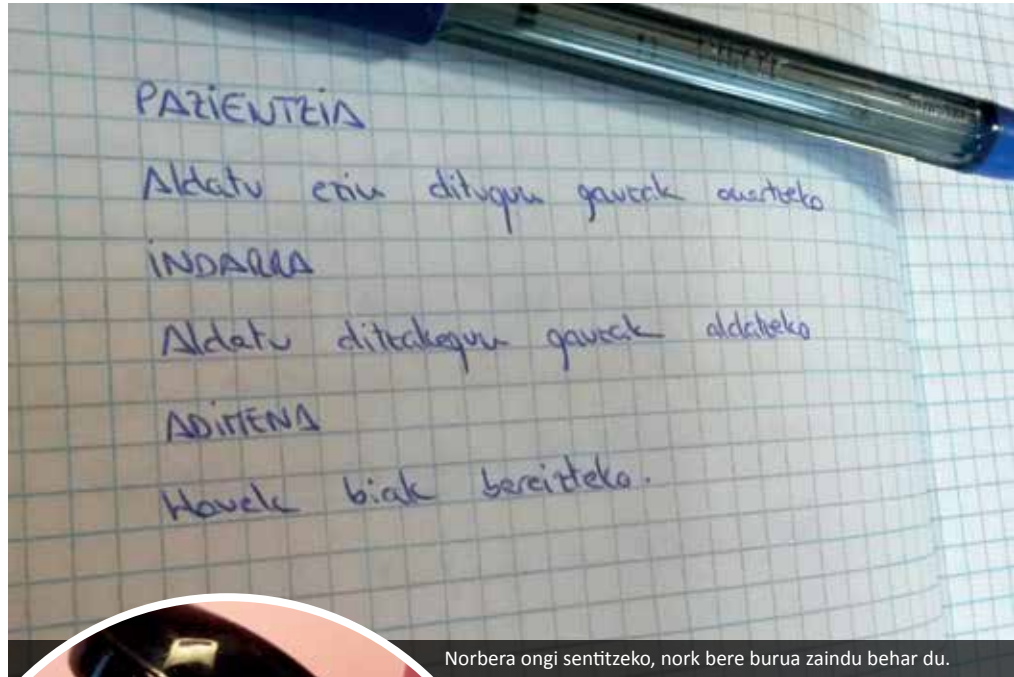 PAZIENTZIA
Aldatu ezin ditugun gauzak onartzeko
INDARRA
Aldatu ditzakegun gauzak aldatzeko
ADIMENA
Hauek biak bereizteko.
Norbera ongi sentitzeko, nork bere burua zaindu behar du.